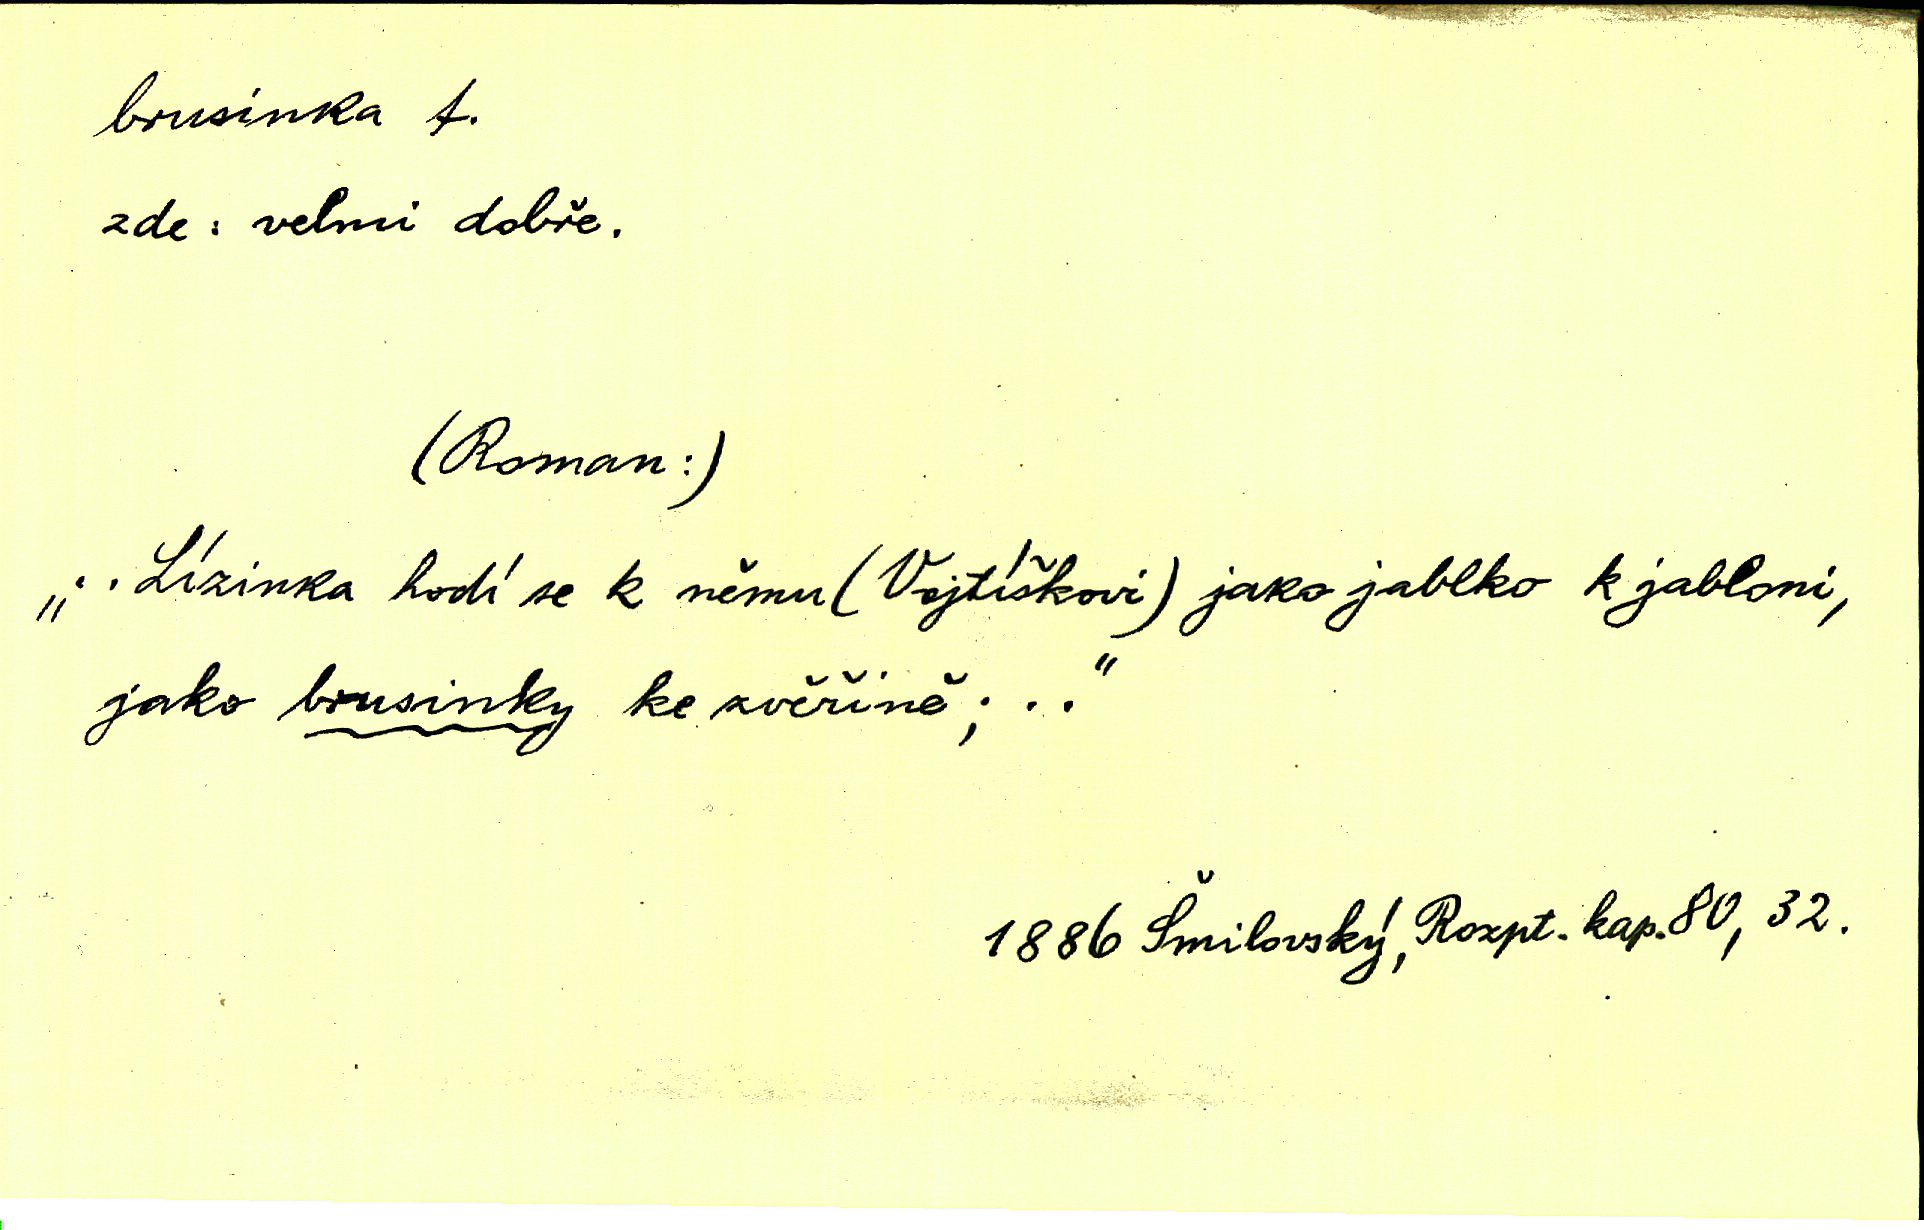 brusinka f.
zde: velmi dobře.
(Roman:)
„.. Lízinka hodí se k němu (Vojtíškovi) jako jablko k jabloni,
jako brusinky ke zvěřině; .."
1886 Šmilovský, Rozpt. kap. 80, 32.